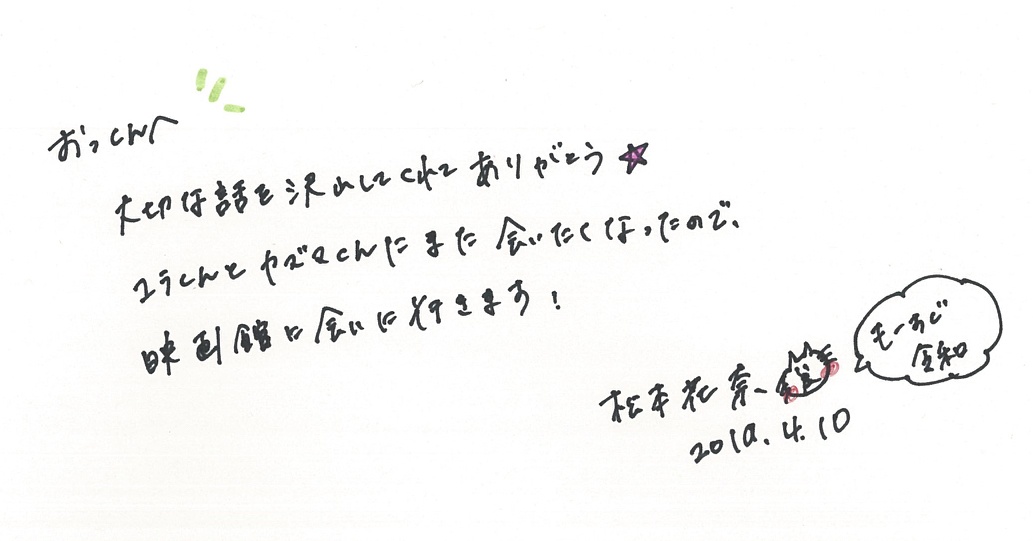 おっくんへ
大切な話を沢山してくれてありがとう
ユラくんとカズマくんにまた会いたくなったので、
映画館に会いに行きます!
松本花奈
2019.4.10